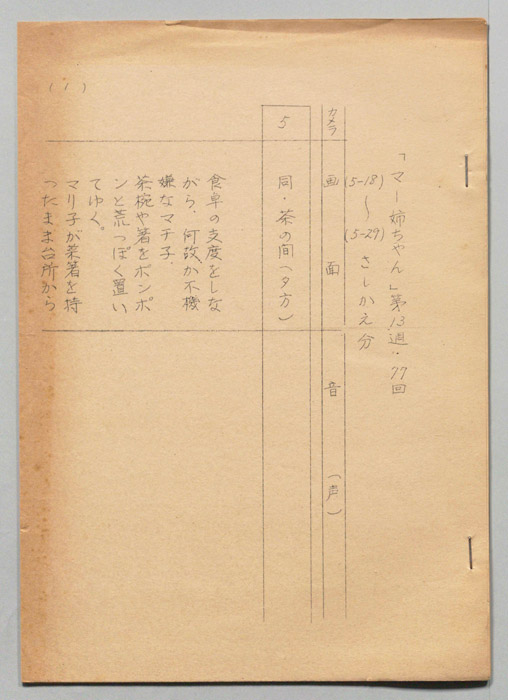 「マー姉ちゃん」第13週・77回
(5-18)〜(5-29)さしかえ分
カメラ 画面 音(声)
5 同・茶の間(夕方)
食卓の支度をしな
がら、何故か不機
嫌なマチ子、
茶椀や箸をポンポ
ンと荒っぽく置い
てゆく。
マリ子が菜箸を持
ったまま台所から
(1)